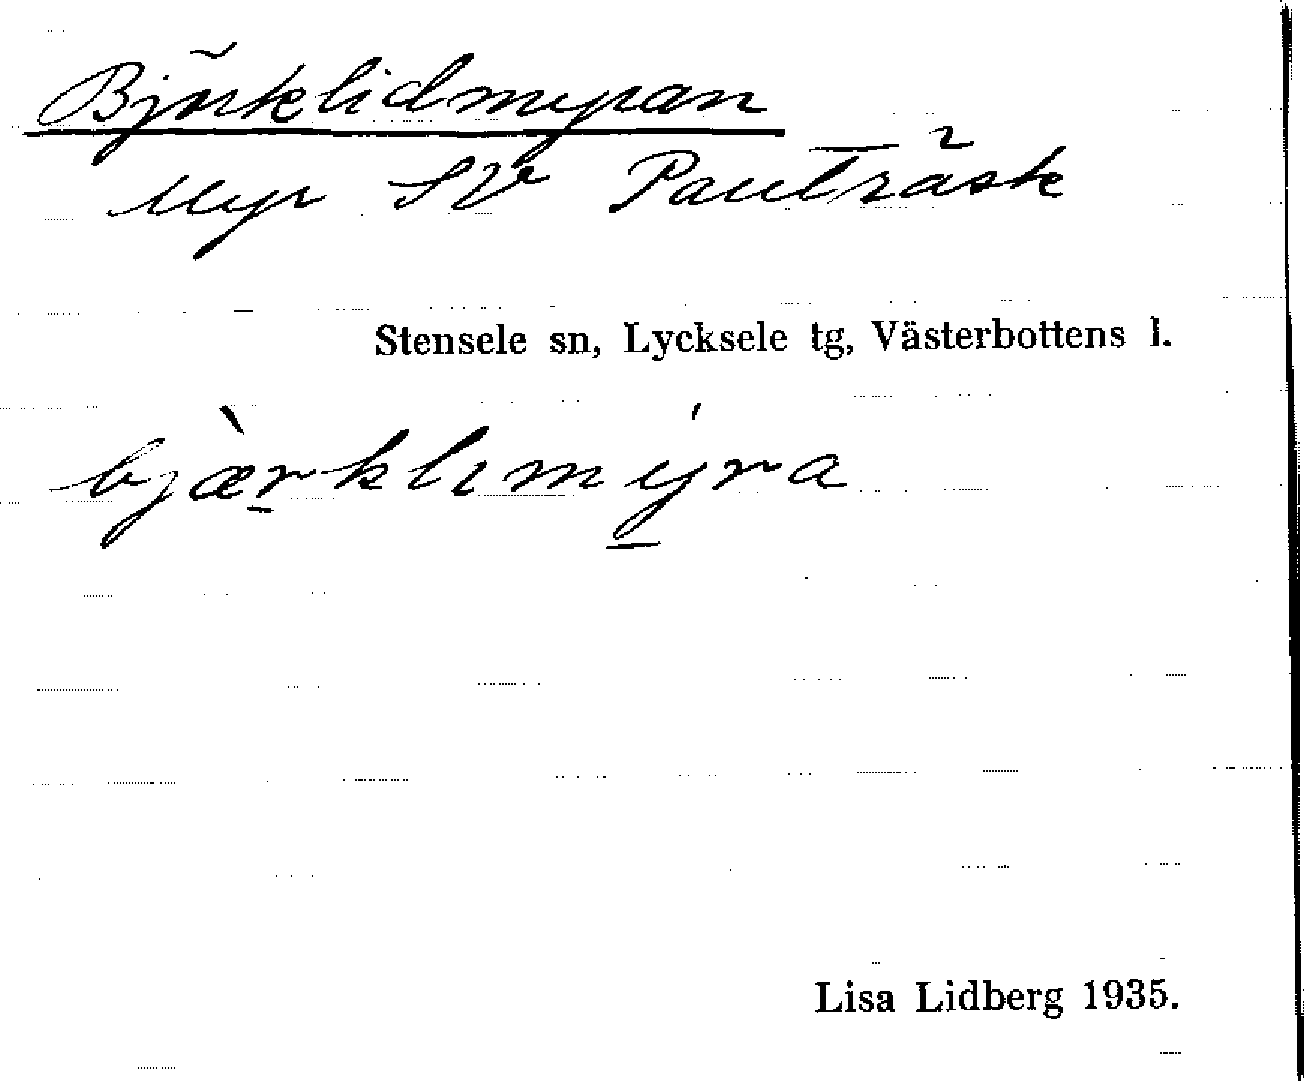 Björklidmyran
Myr SV Pauträsk
Stensele sn, Lycksele tg, Västerbottens l.
bjæ̀rklımýra
Lisa Lidberg 1935.